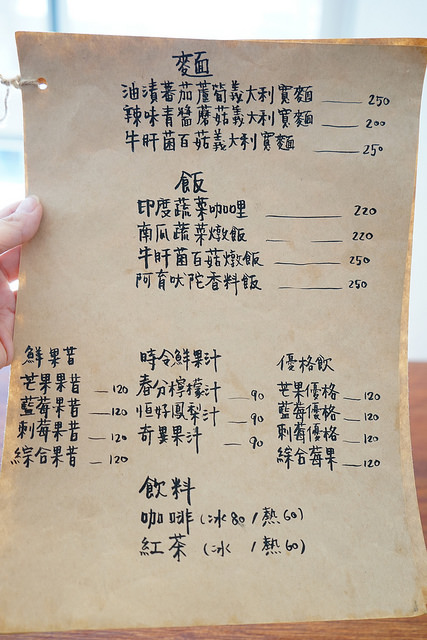 麵
油漬蕃茄蘆筍義大利寬麵 ___ 250
辣味青醬蘑菇義大利寬麵 ___ 200
牛肝菌百菇義大利寬麵 ___ 250
飯
印度蔬菜咖哩 ___ 220
南瓜蔬菜燉飯 ___ 220
牛肝菌百菇燉飯 ___ 250
阿育吠陀香料飯 ___ 250
鮮果昔
芒果果昔 — 120
藍莓果昔 — 120
刺莓果昔 — 120
綜合果昔 — 120
時令鮮果汁
春分檸檬汁 — 90
恒好鳳梨汁 — 90
奇異果汁 — 90
優格飲
芒果優格 — 120
藍莓優格 — 120
刺莓優格 — 120
綜合莓果 — 120
飲料
咖啡 (冰80 / 熱60)
紅茶 (冰 / 熱60)